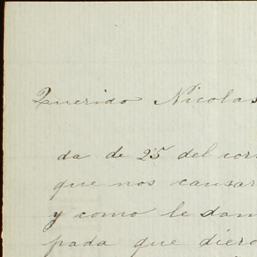 Querido Nicolas
da de 25 del corr
que nos causar
y como le dam
pada que diero